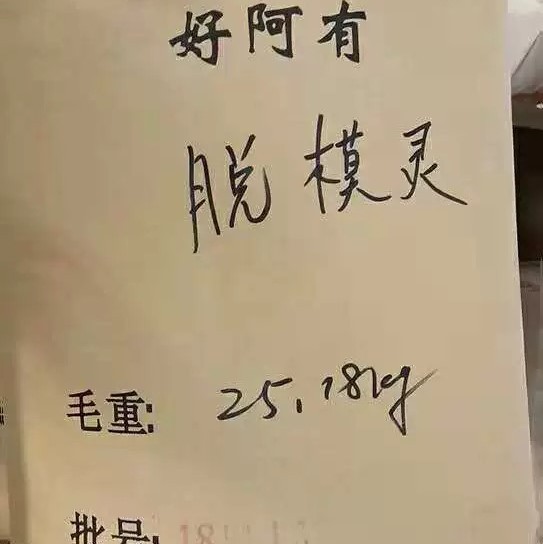 好阿有
脱模灵
毛重: 25.18kg
批号: